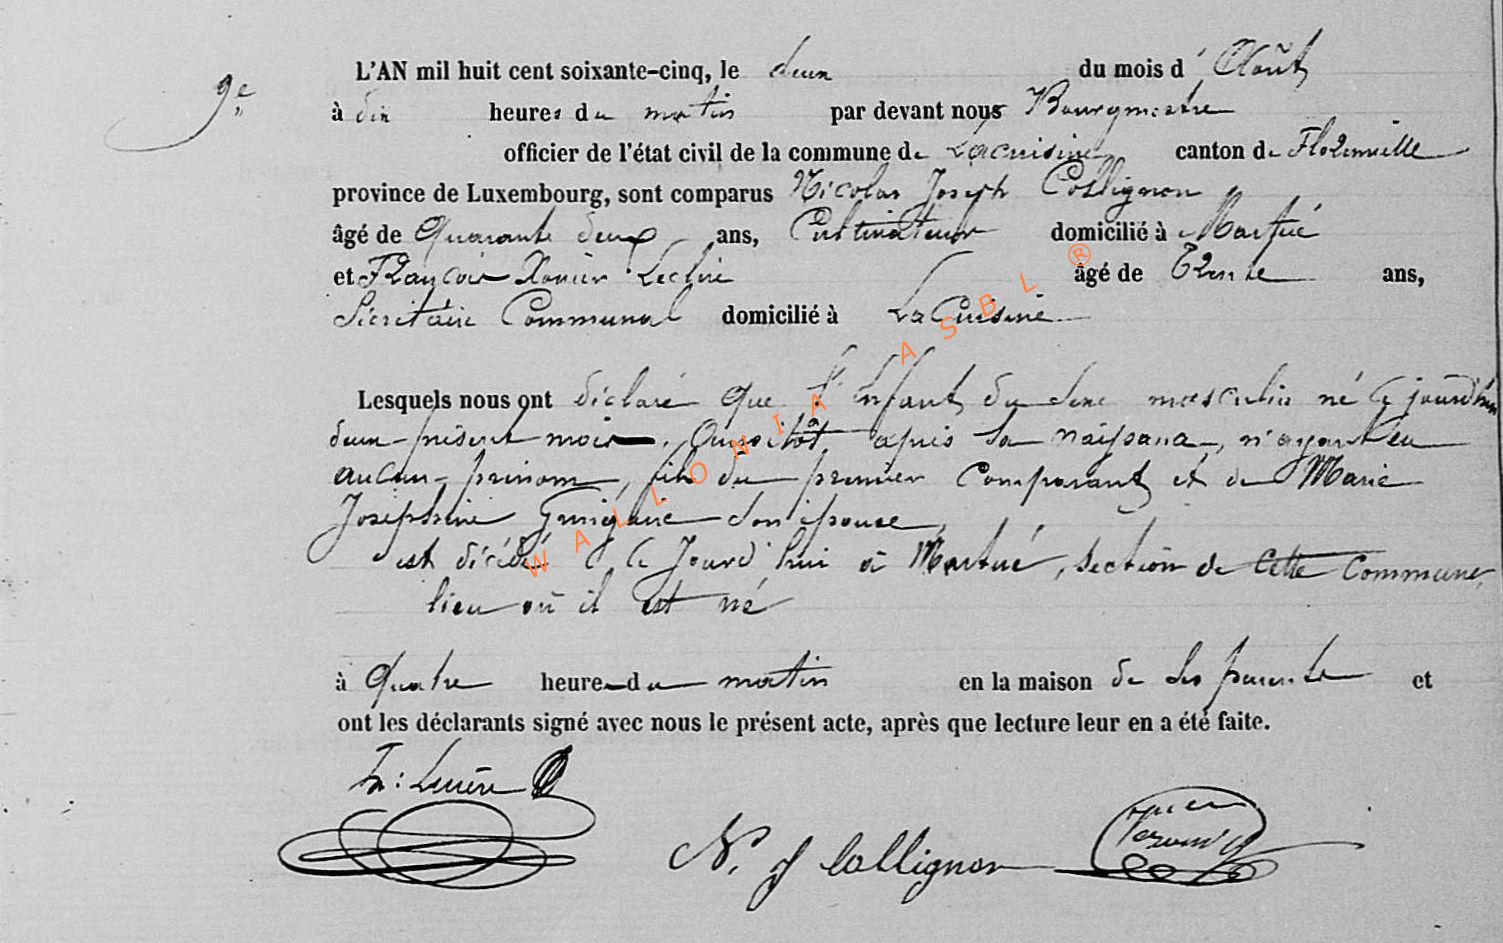 9e
L'AN mil huit cent soixante-cinq, le deux du mois d'Août
à dix heures du matin par devant nous Bourgmestre
officier de l'état civil de la commune de Lacuisine canton de Florenville
province de Luxembourg, sont comparus Nicolas Joseph Collignon
âgé de Quarante deux ans, Cultivateur domicilié à Martué
et François Xavier age de Trente ans,
Secrétaire Communal domicilié à LaCuisine
Lesquels nous ont déclaré que l'Enfant du sexe masculin né ce jourd'hui
deux présent mois, Aussitôt après sa naissance, n'ayant eu
aucun prénom, fils du premier Comparant et de Marie
Josephine son épouse,
est décédé ce Jourd'hui à Martué, section de cette Commune,
lieu où il est né
à Quatre heures du matin en la maison de ses parents et
ont les déclarants signé avec nous le présent acte, après que lecture leur en a été faite.
N. J Collignon
WALLONIA ASBL ®